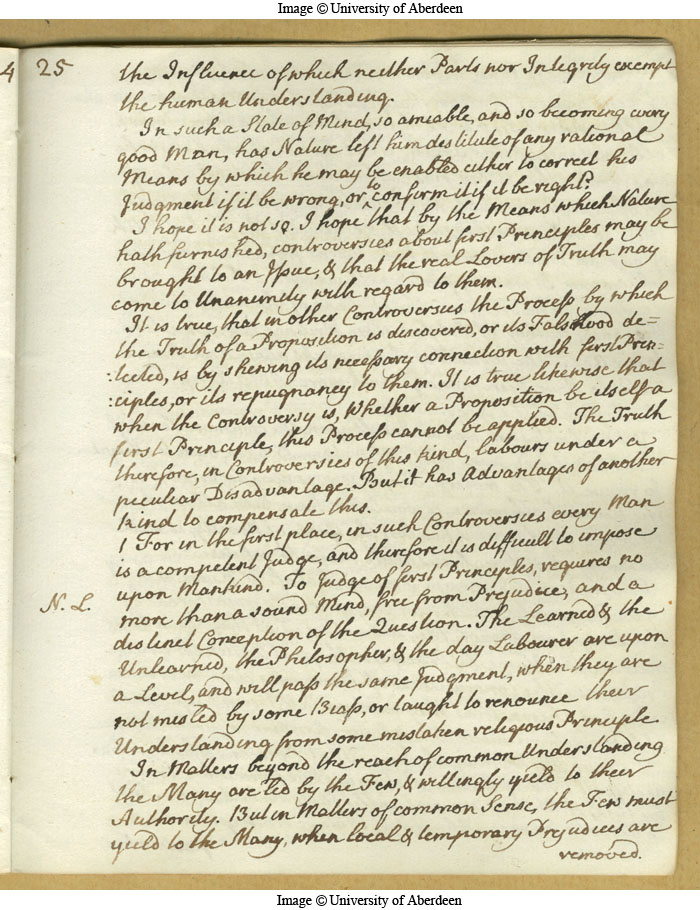 Image © University of Aberdeen
4
25
the Influence of which neither Parts nor Integrity exempt
the human Understanding.
In such a State of Mind, so amiable, and so becoming every
good Man, has Nature left him destitute of any rational
Means by which he may be enabled either to correct his
Judgment if it be wrong, or to confirm it if it be right?
I hope it is not so. I hope that by the Means which Nature
hath furnished, controversies about first Principles may be
brought to an Issue, & that the real Lovers of Truth may
come to Unanimity with regard to them.
It is true, that in other Controversies the Process by which
the Truth of a Proposition is discovered, or its Falshood de=
:tected, is by shewing its necessary connection with first Prin=
:ciples, or its repugnancy to them. It is true likewise that
when the Controversy is, Whether a Proposition be itself a
first Principle, this Process cannot be applied. The Truth
therefore, in Controversies of this kind, labours under a
peculiar Disadvantage. But it has Advantages of another
kind to compensate this.
1 For in the first place, in such Controversies every Man
is a competent Judge, and therefore it is difficult to impose
upon Mankind. To Judge of first Principles, requires no
N. L.
more than a sound Mind, free from Prejudice, and a
distinct Conception of the Question. The Learned & the
Unlearned, the Philosopher, & the day Labourer are upon
a Level, and will pass the same Judgment, when they are
not misled by some Biass, or taught to renounce their
Understanding from some mistaken religious Principle.
In Matters beyond the reach of common Understanding
the Many are led by the Few, & willingly yield to their
Authority. But in Matters of common Sense, the Few must
yield to the Many, when local & temporary Prejudices are
removed.
Image © University of Aberdeen